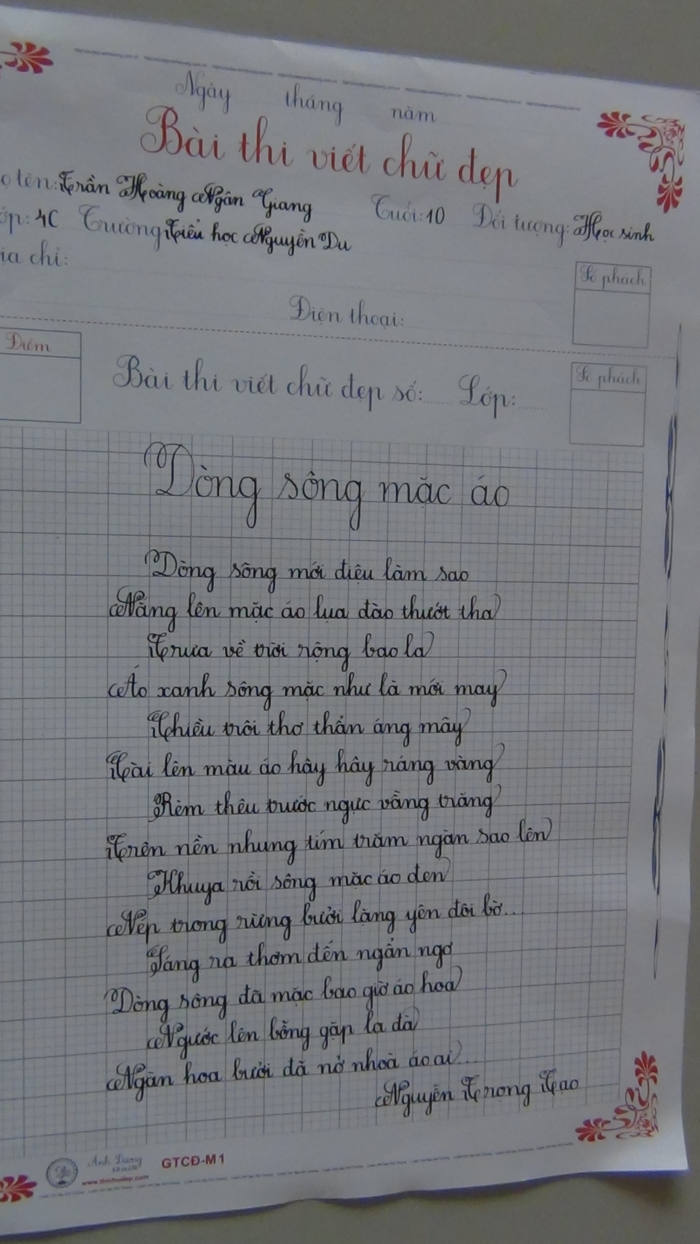 Ngày tháng năm
Bài thi viết chữ đẹp
ọ tên: Trần Hoàng Ngân Giang Tuổi: 10 Đối tượng: Học sinh
ớp: 4C Trường Tiểu học Nguyễn Du
ịa chỉ:
Điện thoại:
Số phách
Điểm
Bài thi viết chữ đẹp số: Lớp:
Số phách
Dòng sông mặc áo
Dòng sông mới điệu làm sao
Nắng lên mặc áo lụa đào thướt tha
Trưa về trời rộng bao la
Áo xanh sông mặc như là mới may
Chiều trôi thơ thẩn áng mây
Cài lên màu áo hây hây ráng vàng
Rèm thêu trước ngực vầng trăng
Trên nền nhung tím trăm ngàn sao lên
Khuya rồi sông mặc áo đen
Nép trong rừng bưởi lặng yên đôi bờ...
Sáng ra thơm đến ngẩn ngơ
Dòng sông đã mặc bao giờ áo hoa
Ngước lên bỗng gặp la đà
Ngàn hoa bưởi đã nở nhoà áo ai...
Nguyễn Trọng Tạo
Ánh Dương
GTCĐ-M1